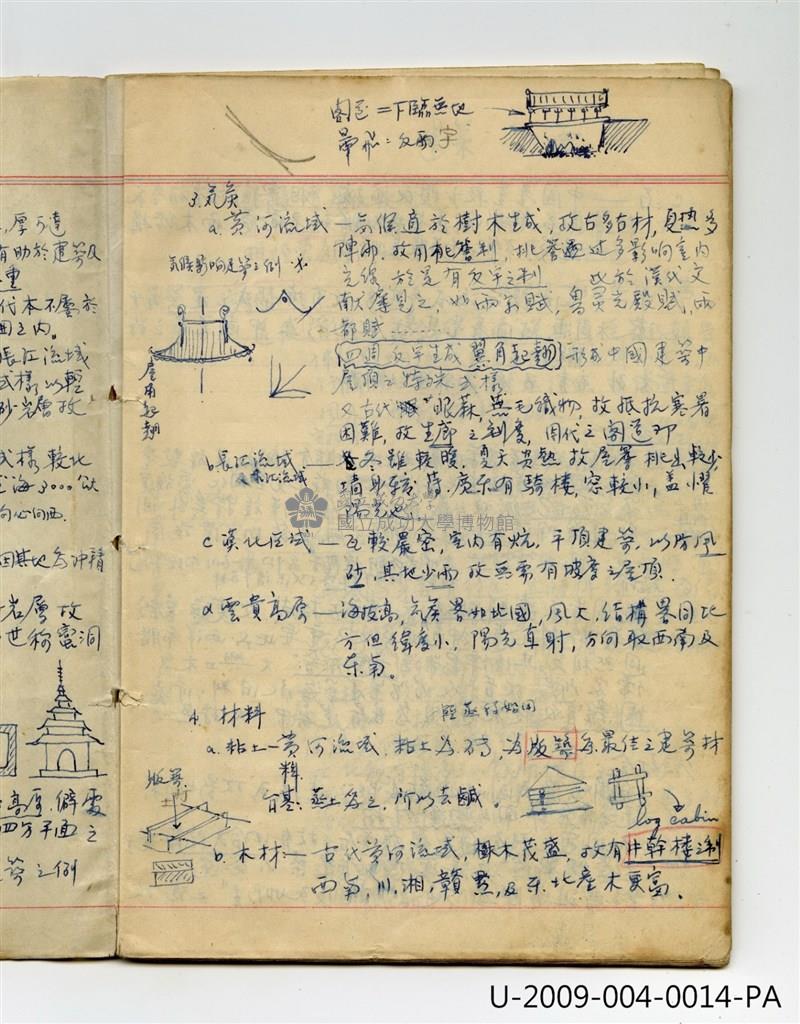 閣道=下臨無地
翬飛:反宇
3.氣候
a.黄河流域—氣候適於樹木生成,故古多古材,夏熱多
陣雨.故用挑簷制,挑簷過多影響室内
氣候影响建築之例
光線 於是有反宇之制 此於漢代文
献屢見之,如兩京賦,魯灵光殿賦,
都賦………
屋角起翹
四週反宇生成翼角起翹 形成中國建築中
屋頂之特殊式樣
又古代 眼蔴,無毛織物,故抵抗寒暑
困難,故生廊之制度,周代之閣道即
b.長江流域—冬雖較暖,夏天炎熱故屋簷挑出較少,
及珠江流域
墙身較薄.廣东有騎樓,窓較小,盖懼
陽光也
國立成功大學博物館
c 漠北区域—瓦較嚴密,室内有炕,平頂建築,以防風
砂,其地少雨故無需有坡度之屋頂.
d.雲貴高原—海拔高,氣候畧如北國,風大,結構畧同北
方但緯度小,陽光直射,方向取西南及
东南。
4. 材料
a.粘土—黄河流域,粘土為磚,為版築為最佳之建築材
料.
版築
土
台基:蒸土為之,所以去鹹。
log cabin
b.木材:—古代黄河流域,樹木茂盛,故有井幹樓之制
西南,川,湘,贛 黔,及东北產木更富.
厚可達
有助於建築及
重
代本不屬於
國之内。
長江流域
式樣,以輕
砂岩層故
式樣較北
海3000公
向心向西.
因其地為冲積
岩層故
世称窰洞
高原,僻處
四方平面之
築之例
U-2009-004-0014-PA